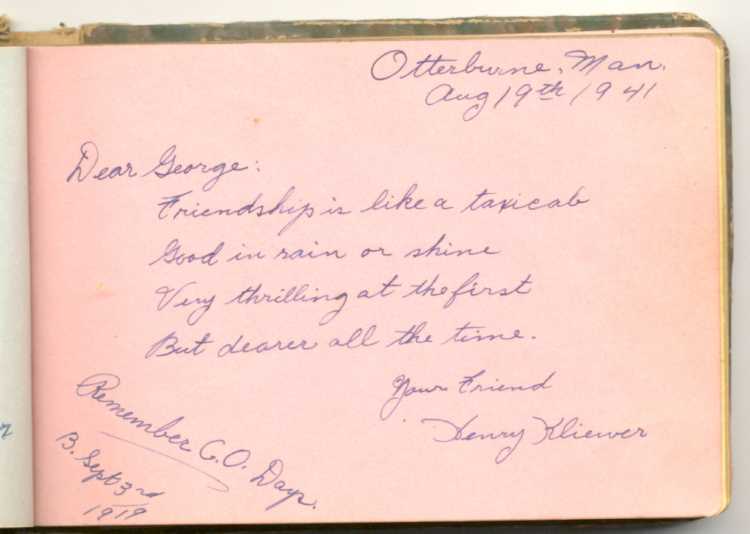 Otterburne, Man.
Aug 19th 1941
Dear George:
Friendship is like a taxicab
Good in rain or shine
Very thrilling at the first
But dearer all the time.
Your Friend
Henry Kliewer
Remember C.O. Days.
B. Sept 3rd
1919